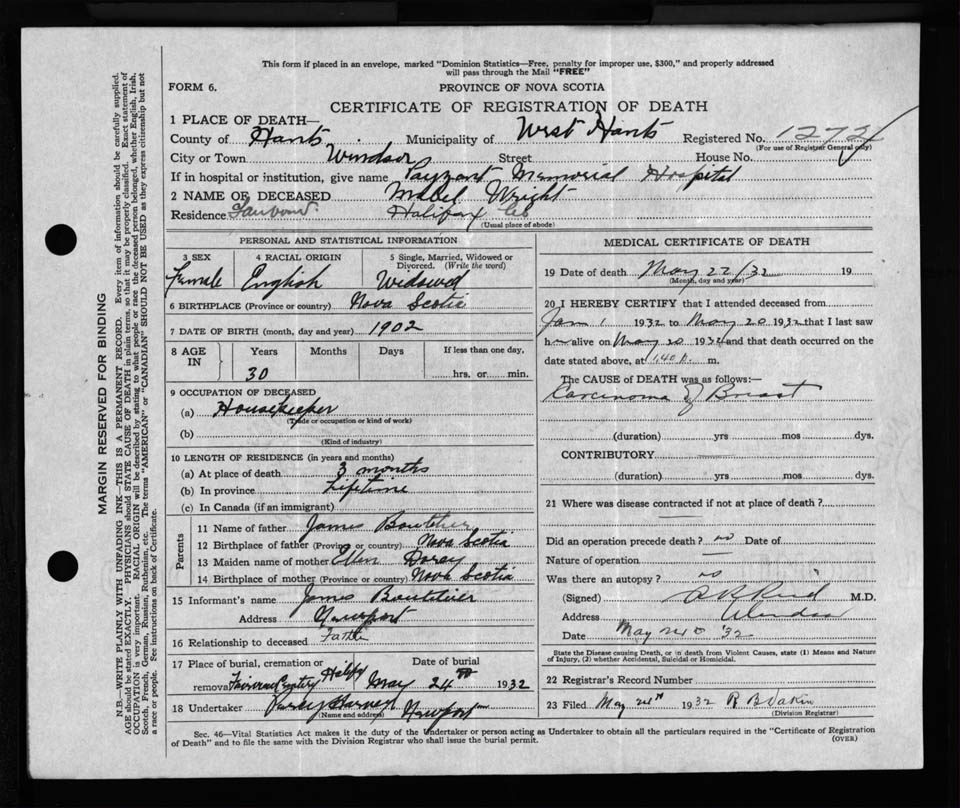 This form if placed in an envelope, marked "Dominion Statistics—Free, penalty for improper use, $300," and properly addressed
will pass through the Mail "FREE"
FORM 6.
PROVINCE OF NOVA SCOTIA
CERTIFICATE OF REGISTRATION OF DEATH
1 PLACE OF DEATH—
County of Hants Municipality of West Hants Registered No. 1272
(For use of Registrar General only)
City or Town Windsor Street House No.
If in hospital or institution, give name Payzant Memorial Hospital
2 NAME OF DECEASED Mabel Wright
Residence Halifax Co
(Usual place of abode)
PERSONAL AND STATISTICAL INFORMATION
3 SEX 4 RACIAL ORIGIN 5 Single, Married, Widowed or
Divorced. (Write the word)
Female English Widowed
6 BIRTHPLACE (Province or country) Nova Scotia
7 DATE OF BIRTH (month, day and year) 1902
8 AGE IN Years Months Days If less than one day,
30 hrs. or min.
9 OCCUPATION OF DECEASED
(a) Housekeeper
(Trade or occupation or kind of work)
(b)
(Kind of industry)
10 LENGTH OF RESIDENCE (in years and months)
(a) At place of death 3 months
(b) In province Lifetime
(c) In Canada (if an immigrant)
Parents
11 Name of father James Boutilier
12 Birthplace of father (Province or country) Nova Scotia
13 Maiden name of mother Ellen Dorey
14 Birthplace of mother (Province or country) Nova Scotia
15 Informant's name James Boutilier
Address Newport
16 Relationship to deceased Father
17 Place of burial, cremation or Date of burial
removal Fairview Cemetery Halifax May 24th 1932
18 Undertaker Harvey Newport
(Name and address)
MEDICAL CERTIFICATE OF DEATH
19 Date of death May 22/32 19
(Month, day and year)
20 I HEREBY CERTIFY that I attended deceased from
Jan 1 1932 to May 20 1932 that I last saw
her alive on May 20 1932 and that death occurred on the
date stated above, at 1.40 p. m.
The CAUSE of DEATH was as follows:—
Carcinoma of Breast
(duration) yrs mos dys.
CONTRIBUTORY
(duration) yrs mos dys.
21 Where was disease contracted if not at place of death?
Did an operation precede death? no Date of
Nature of operation
Was there an autopsy? no
(Signed) Reid M.D.
Address Windsor
Date May 24 '32
State the Disease causing Death, or in death from Violent Causes, state (1) Means and Nature
of Injury, (2) whether Accidental, Suicidal or Homicidal.
22 Registrar's Record Number
23 Filed May 24th 1932 R B Dakin
(Division Registrar)
Sec. 46—Vital Statistics Act makes it the duty of the Undertaker or person acting as Undertaker to obtain all the particulars required in the "Certificate of Registration
of Death" and to file the same with the Division Registrar who shall issue the burial permit.
(OVER)
MARGIN RESERVED FOR BINDING
N.B.—WRITE PLAINLY WITH UNFADING INK—THIS IS A PERMANENT RECORD. Every item of information should be carefully supplied.
AGE should be stated EXACTLY. PHYSICIANS should STATE CAUSE OF DEATH in plain terms, so that it may be properly classified. Exact statement of
OCCUPATION is very important. RACIAL ORIGIN will be described by stating to what people or race the deceased person belonged, whether English, Irish,
Scotch, French, German, Russian, Ruthenian, etc. The terms "AMERICAN" or "CANADIAN" SHOULD NOT BE USED as they express citizenship but not
a race or people. See instructions on back of Certificate.